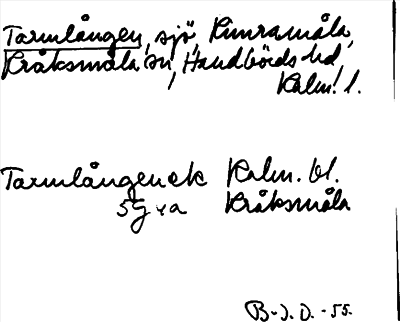 Tarmlången, sjö, Kimramåla,
Kråksmåla sn, Handbörds hd,
Kalm. l.
Tarmlången ek Kalm. bl.
5 G v a Kråksmåla
B-J. O. -55.